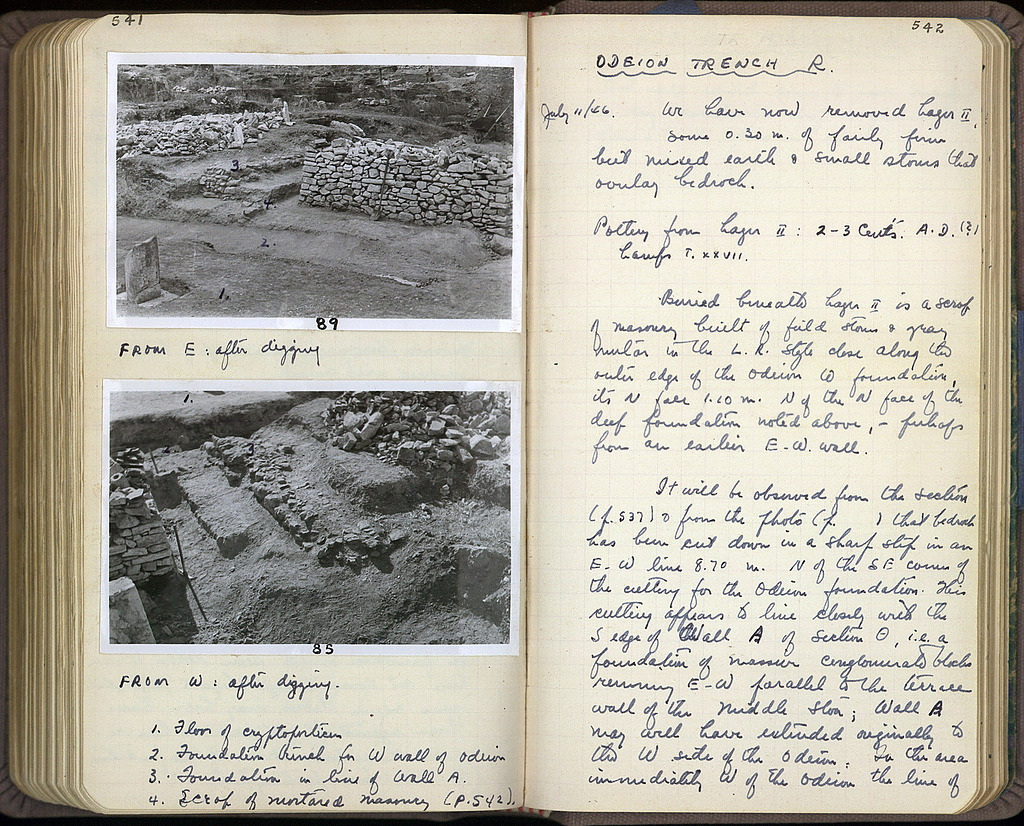 541
89
FROM E : after digging
85
FROM W : after digging.
1. Floor of cryptoporticus
2. Foundation trench for W wall of Odeion
3. Foundation in line of Wall A.
4. Scrap of mortared masonry (P.542).
542
ODEION TRENCH R.
July 11/46. We have now removed Layer II,
some 0.30 m. of fairly firm
but mixed earth & small stones that
overlay bedrock.
Pottery from Layer II : 2-3 Cents. A.D. (?)
Lamps T. XXVII.
Buried beneath Layer II is a scrap
of masonry built of field stones & gray
mortar in the L.R. style close along the
outer edge of the Odeion W foundation,
its N face 1.10 m. N of the N face of the
deep foundation noted above, - perhaps
from an earlier E-W. wall.
It will be observed from the section
(p.537) & from the photo (p. ) that bedrock
has been cut down in a sharp step in an
E-W line 8.70 m. N of the SE corner of
the cutting for the Odeion foundation. This
cutting appears to line closely with the
S edge of Wall A of Section Θ, i.e. a
foundation of massive conglomerate blocks
running E-W parallel to the terrace
wall of the Middle Stoa; Wall A
may well have extended originally to
the W side of the Odeion. In the area
immediately W of the Odeion the line of